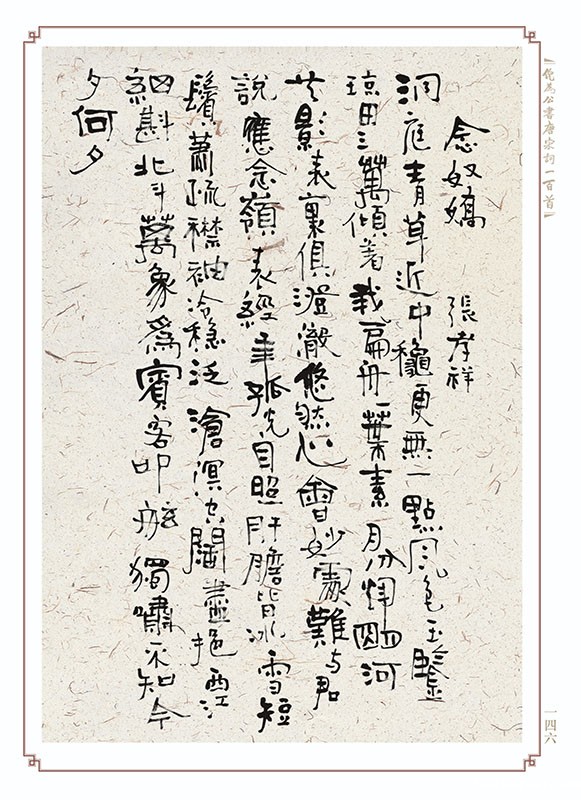 倪為公書唐宋詞一百首
念奴嬌 張孝祥
洞庭青草近中穐更無一點風色玉鑒
琼田三萬傾著我扁舟一葉素月分輝明河
共影表裏俱澄澈悠然心會妙處難与君
說應念嶺表經年孤光自照肝膽皆冰雪短
鬢蕭疏襟袖冷穩泛滄溟空闊盡挹西江
細斟北斗萬象爲賓客叩舷獨嘯不知今
夕何夕
一四六